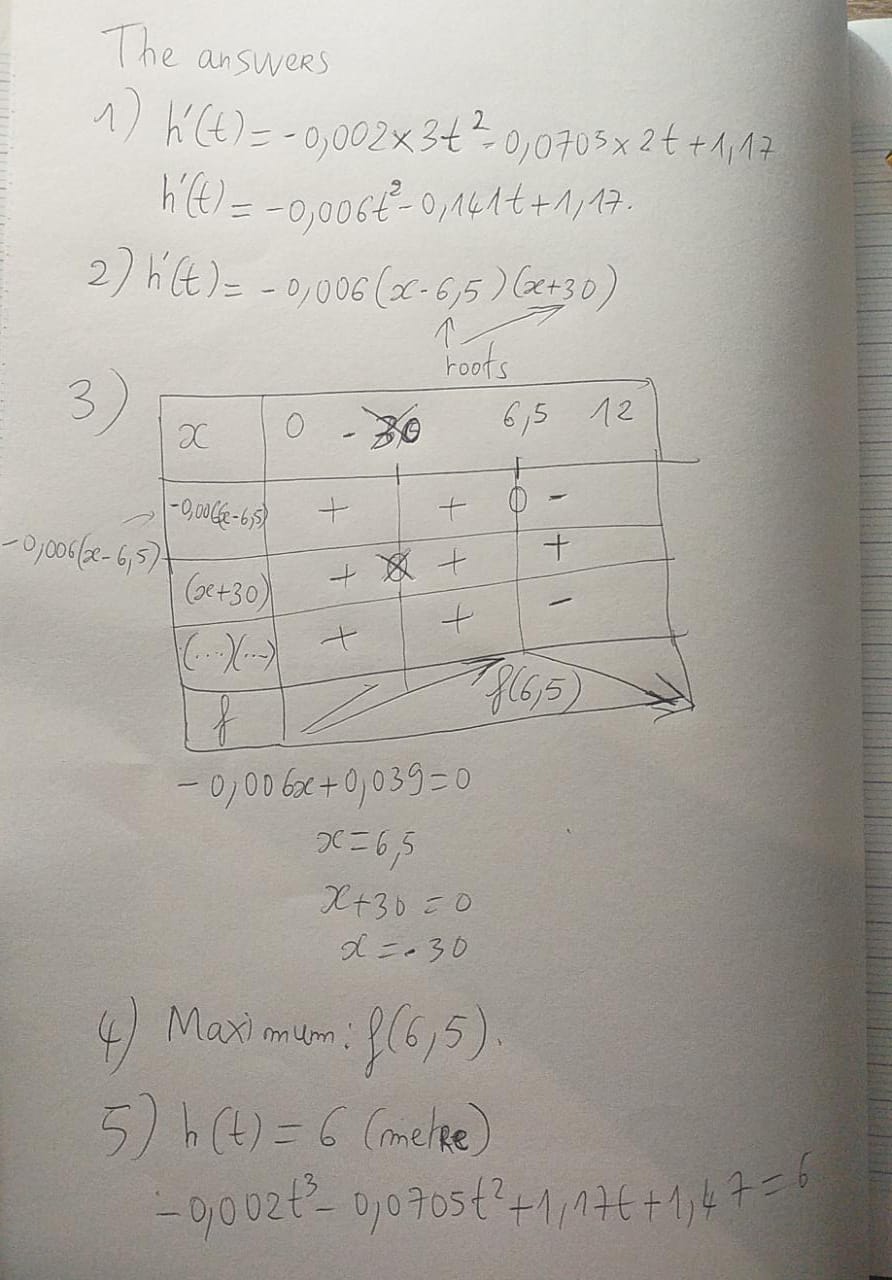 The answers
1) h'(t) = -0,002×3t² - 0,0705×2t + 1,17
h'(t) = -0,006t² - 0,141t + 1,17.
2) h'(t) = -0,006(x-6,5)(x+30)
roots
3)
x 0 6,5 12
-0,006(x-6,5) + + 0 -
-0,006(x-6,5)
(x+30) + + +
(....)(....) + + -
f f(6,5)
-0,006x + 0,039 = 0
x = 6,5
x + 30 = 0
x = -30
4) Maximum: f(6,5).
5) h(t) = 6 (metre)
-0,002t³ - 0,0705t² + 1,17t + 1,47 = 6